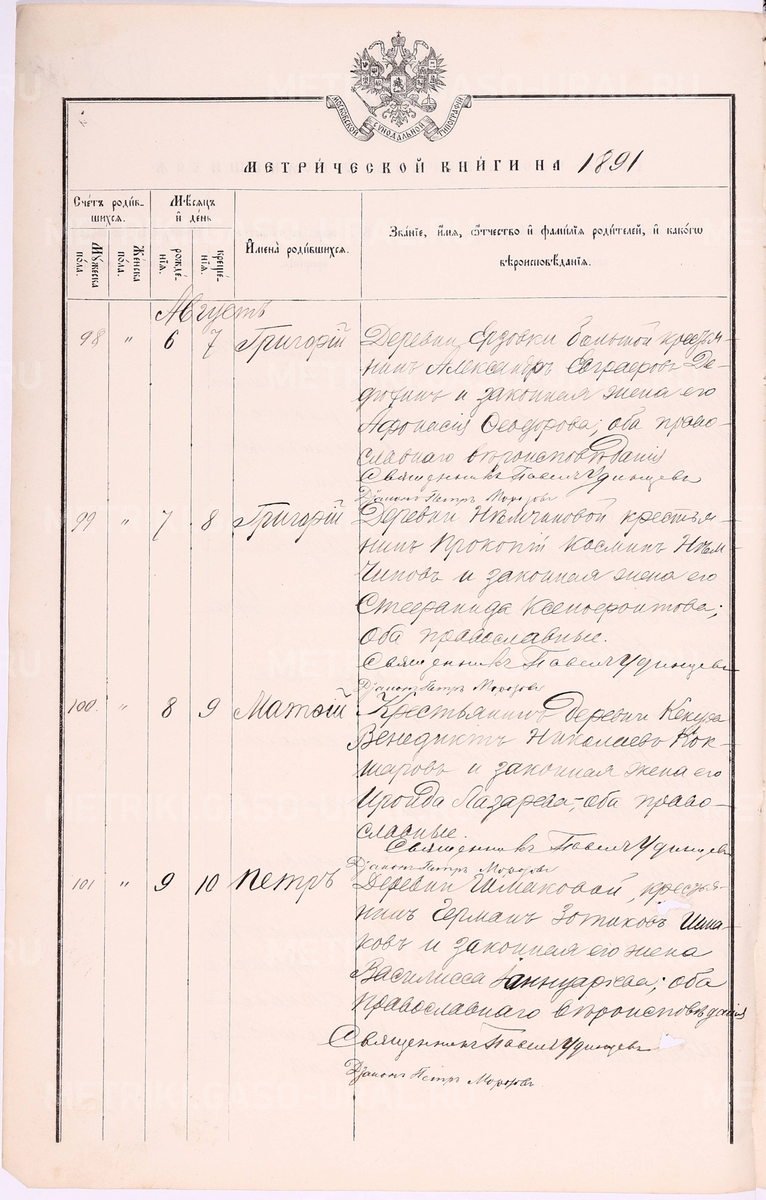 МОСКОВСКОЙ СУНОДАЛЬНОЙ ТИПОГРАФІИ
МЕТРИ́ЧЕСКОЙ КНИ́ГИ НА 1891
Сче́тъ роди́вшихся.
Му́жеска по́ла.
Же́нска по́ла.
Мѣ́сяцъ и҆ де́нь
рожде́нїѧ.
креще́нїѧ.
И҆мена̀ роди́вшихся.
Зва́нїе, и҆́мя, ѻ҆́тчество и҆ фами́лїя роди́телей, и҆ како́гѡ
вѣроисповѣ́данїя.
Августъ
98 " 6 7 Григорій Деревни Ердовки большой крестья-
нинъ Александръ Евграфовъ Де-
дюхинъ и законная жена его
Афонасія Ѳеодорова; оба право-
славнаго вѣроисповѣданія
Священникъ Павелъ Удинцевъ
Діаконъ Петръ Морозовъ
99 " 7 8 Григорій Деревни Нѣмчиновой крестья-
нинъ Прокопій Косминъ Нѣм-
чиновъ и законная жена его
Стефанида Ксенофонтова;
оба православные.
Священникъ Павелъ Удинцевъ
Діаконъ Петръ Морозовъ
100. " 8 9 Матѳій Крестьянинъ деревни Кекура
Венедиктъ Николаевъ Кок-
шаровъ и законная жена его
Ироида Лазарева; оба право-
славные.
Священникъ Павелъ Удинцевъ
Діаконъ Петръ Морозовъ
101 " 9 10 Петръ Деревни Шмаковой, крестья-
нинъ Германъ Зотиковъ Шма-
ковъ и законная его жена
Василисса Іаннуарьева; оба
православнаго вѣроисповѣданія
Священникъ Павелъ Удинцевъ
Діаконъ Петръ Морозовъ